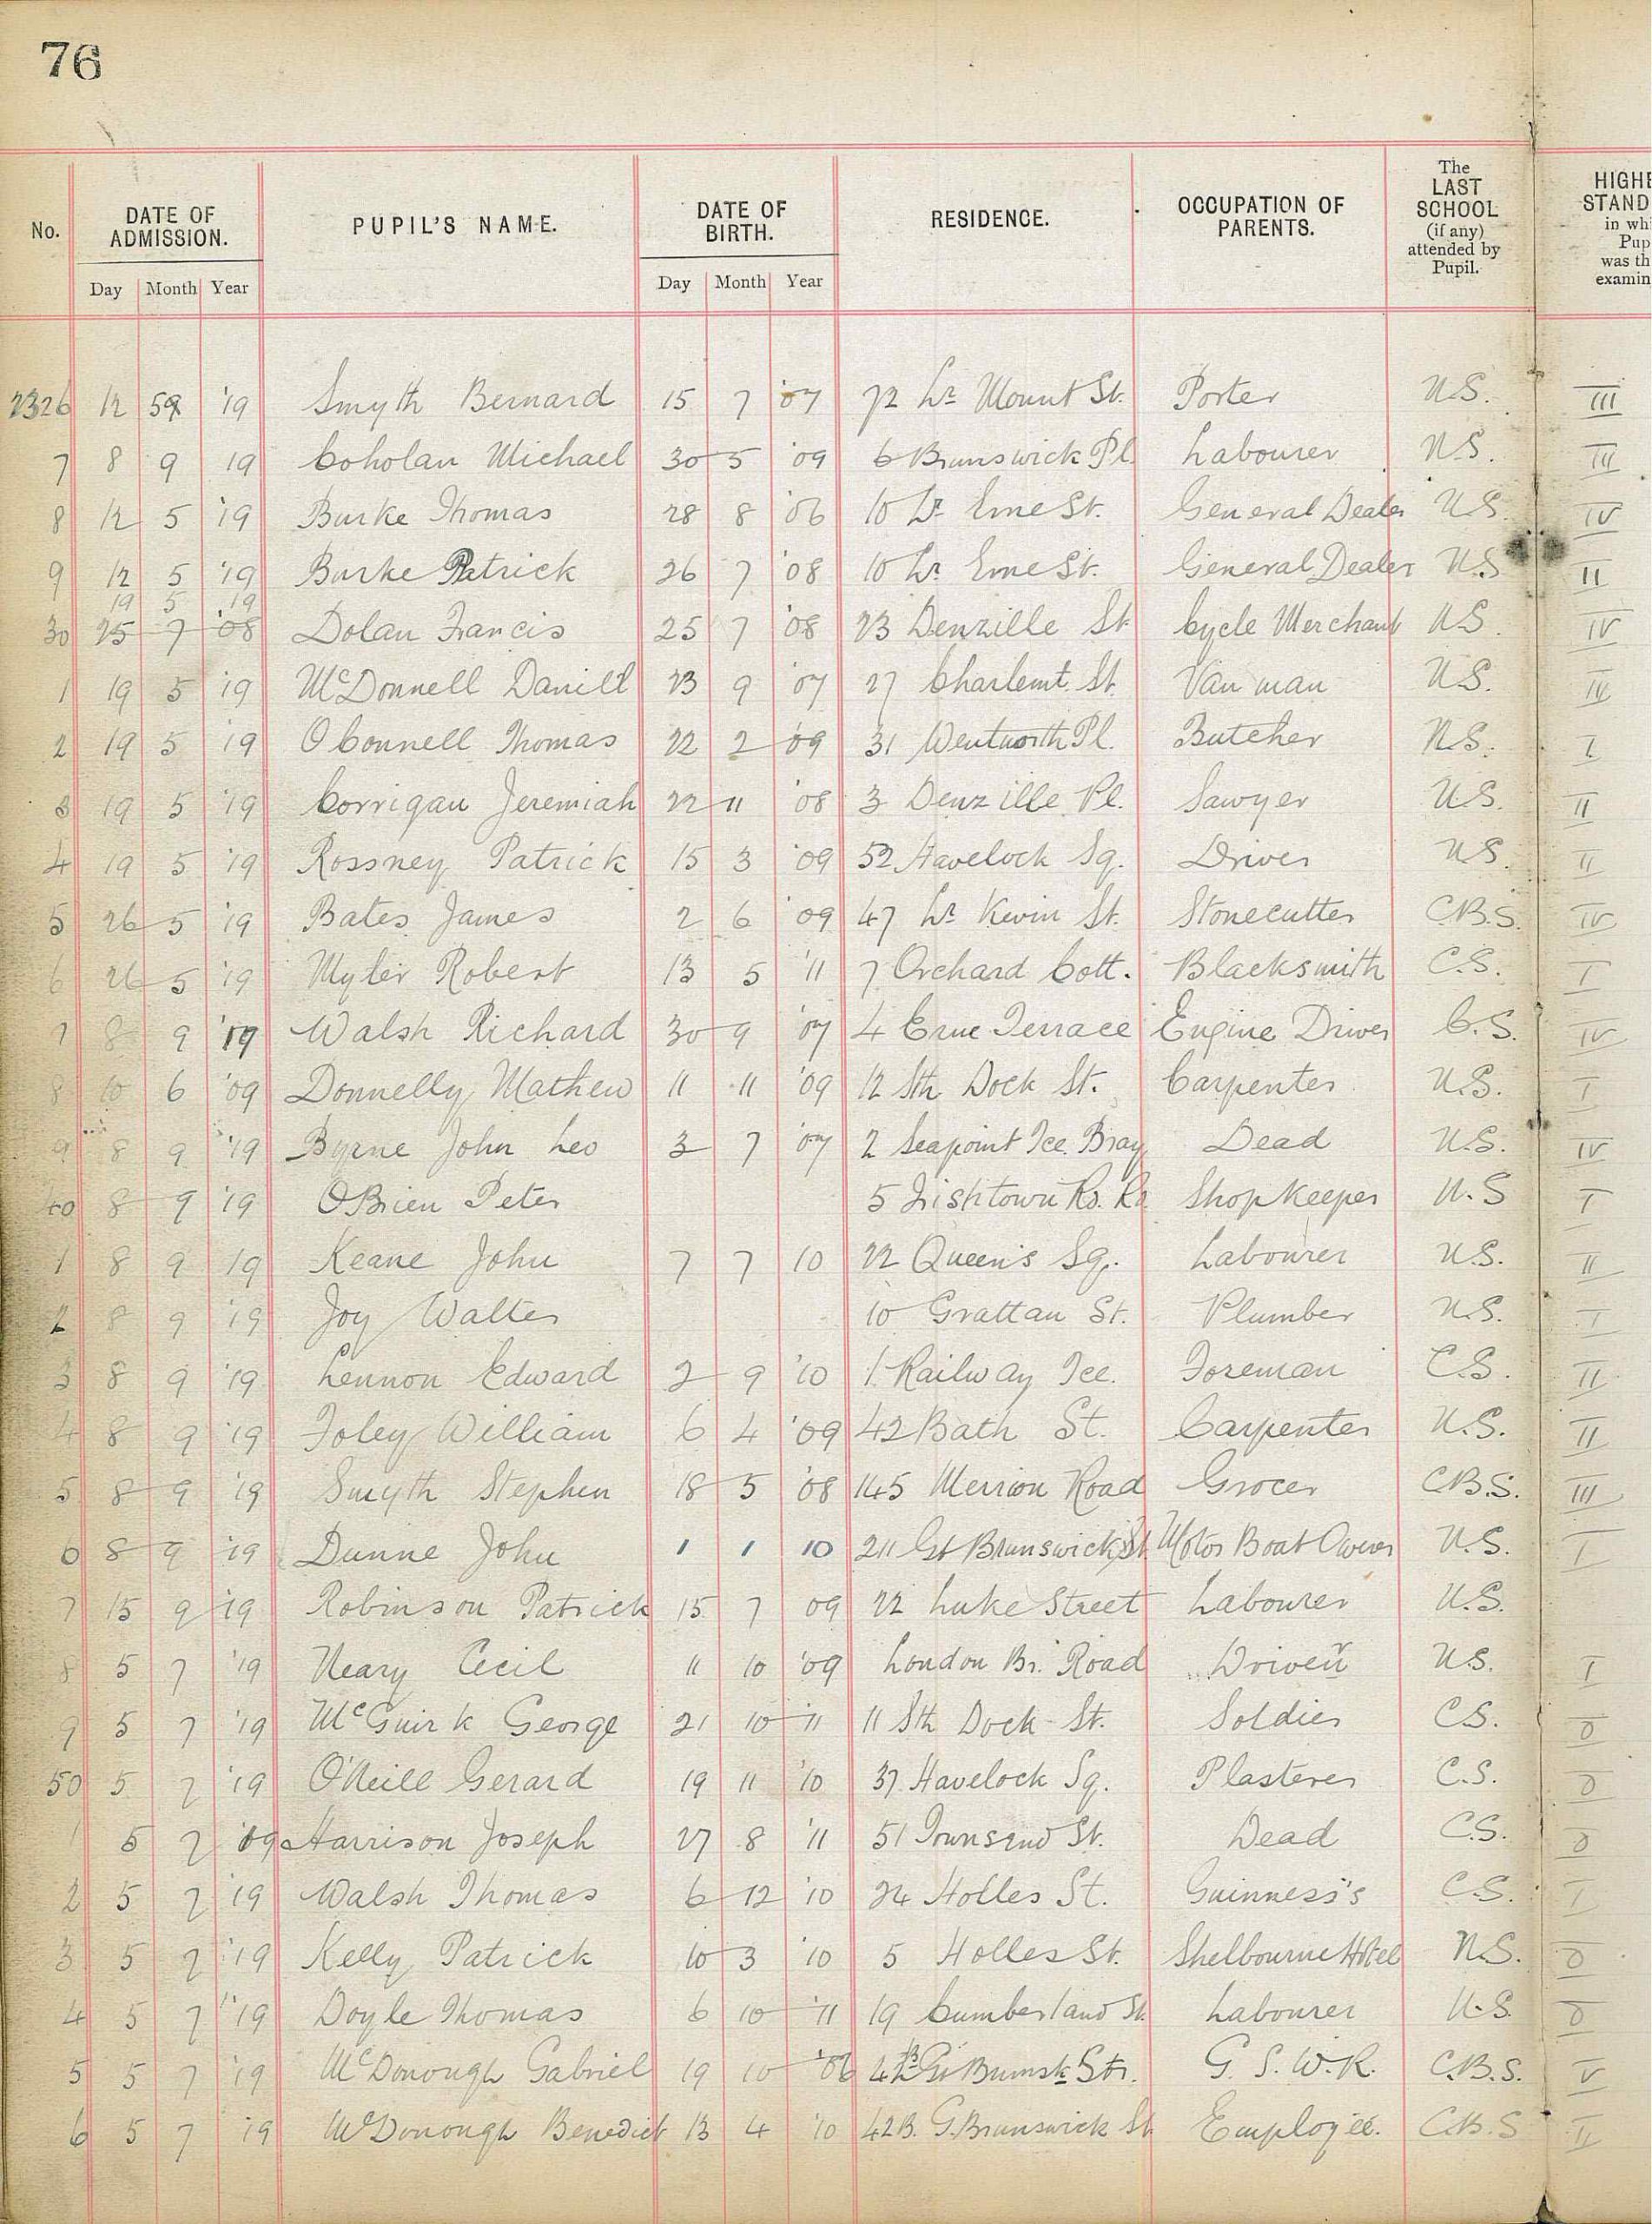 76
No. DATE OF ADMISSION. PUPIL'S NAME. DATE OF BIRTH. RESIDENCE. OCCUPATION OF PARENTS. The LAST SCHOOL (if any) attended by Pupil. HIGHE STAND in whi Pup was th examin
Day Month Year Day Month Year
2326 12 5 '19 Smyth Bernard 15 7 '07 72 Lr Mount St. Porter N.S. III
7 8 9 19 Coholan Michael 30 5 '09 6 Brunswick Pl. Labourer N.S. III
8 12 5 '19 Burke Thomas 28 8 '06 10 Lr Erne St. General Dealer N.S. IV
9 12 5 '19 Burke Patrick 26 7 '08 10 Lr Erne St. General Dealer N.S II
19 5 '19
30 25 7 '08 Dolan Francis 25 7 '08 23 Denzille St Cycle Merchant N.S. IV
1 19 5 '19 McDonnell Daniel 23 9 '07 27 Charlemt. St. Van man N.S.
2 19 5 '19 O Connell Thomas 22 2 '09 31 Wentworth Pl. Butcher N.S. I
3 19 5 '19 Corrigan Jeremiah 22 11 '08 3 Denzille Pl. Sawyer N.S. II
4 19 5 '19 Rossney Patrick 15 3 '09 52 Havelock Sq. Driver N.S. II
5 26 5 '19 Bates James 2 6 '09 47 Lr Kevin St. Stonecutter C.B.S. IV
6 26 5 '19 Myler Robert 13 5 '11 7 Orchard Cott. Blacksmith C.S. I
7 8 9 '19 Walsh Richard 30 9 '07 4 Erne Terrace Engine Driver C.S. IV
8 10 6 '09 Donnelly Mathew 11 11 '09 12 Sth Dock St. Carpenter N.S. I
9 8 9 '19 Byrne John Leo 3 7 '07 2 Seapoint Tce. Bray Dead N.S. IV
40 8 9 '19 OBrien Peter 5 Irishtown Rd. Shopkeeper N.S I
1 8 9 19 Keane John 7 7 10 22 Queen's Sq. Labourer N.S. II
2 8 9 '19 Joy Walter 10 Grattan St. Plumber N.S. I
3 8 9 '19 Lennon Edward 2 9 '10 1 Railway Tce. Foreman C.S. II
4 8 9 '19 Foley William 6 4 '09 42 Bath St. Carpenter N.S. II
5 8 9 '19 Smyth Stephen 18 5 '08 145 Merrion Road Grocer C.B.S. III
6 8 9 '19 Dunne John 1 1 10 211 Gt Brunswick St Motor Boat Owner N.S. I
7 15 9 '19 Robinson Patrick 15 7 09 22 Luke Street Labourer N.S.
8 5 7 '19 Neary Cecil 11 10 '09 London Br. Road Driver N.S. I
9 5 7 '19 McGuirk George 21 10 11 11 Sth Dock St. Soldier C.S. 0
50 5 7 '19 O'Neill Gerard 19 11 '10 37 Havelock Sq. Plasterer C.S. 0
1 5 7 '09 Harrison Joseph 27 8 '11 51 Townsend St. Dead C.S. 0
2 5 7 '19 Walsh Thomas 6 12 '10 24 Holles St. Guinness's C.S. I
3 5 7 '19 Kelly Patrick 10 3 '10 5 Holles St. Shelbourne Hotel N.S. 0
4 5 7 '19 Doyle Thomas 6 10 '11 19 Cumberland St. Labourer N.S. 0
5 5 7 '19 McDonough Gabriel 19 10 '06 Gt Brunsk St. G. S. W. R. C.B.S. V
6 5 7 19 McDonough Benedict 13 4 '10 42B. G. Brunswick St Employee. C.B.S II